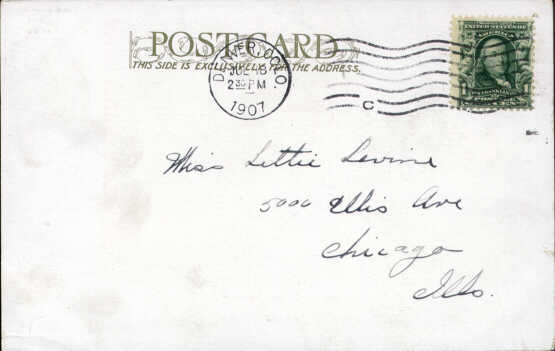 POST CARD
THIS SIDE IS EXCLUSIVELY FOR THE ADDRESS.
DENVER, COLO.
2 30 PM
1907
C
UNITED STATES OF AMERICA
1
Miss Lettie Levine
5000 Ellis Ave
Chicago
Ills.